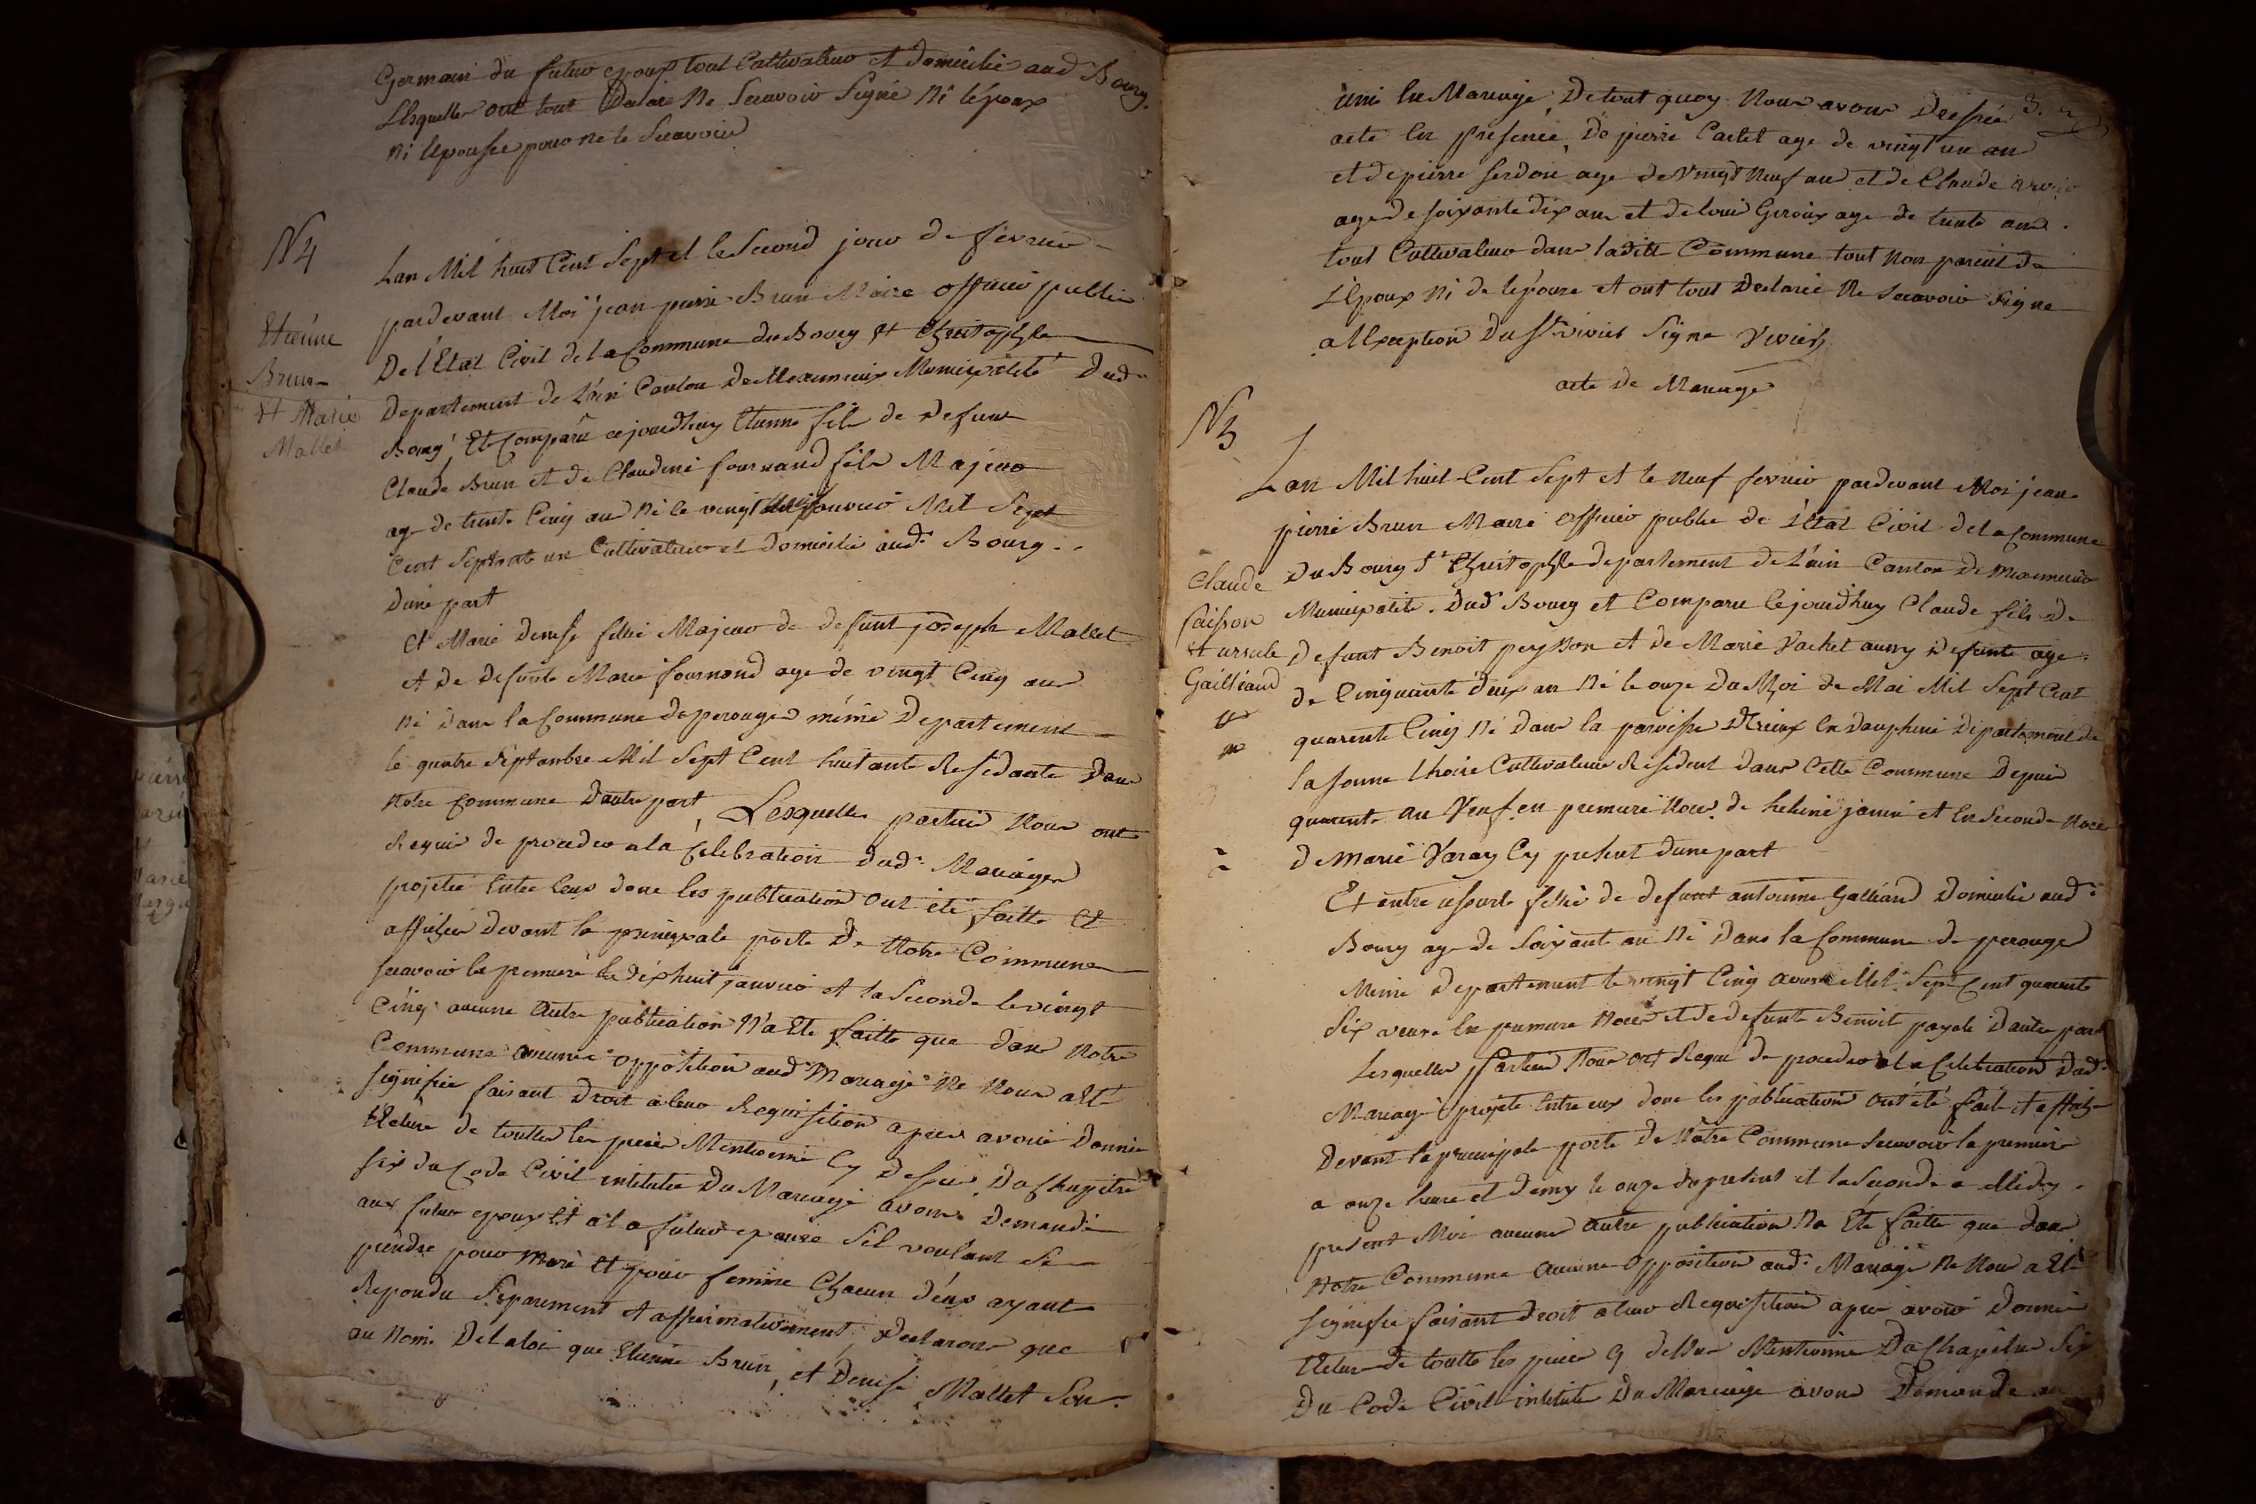 Germain du futur epoux tout Cultivateur et domicilié aud Bourg
Lesquelles ont tout Declaré Ne Scavoir Signé Ni lépoux
Ni lepouse pour ne le Scavoir
N 4
Lan Mil huit Cent Sept et le Second jour de fevrier
pardevant Moi jean pierre Brun Maire officier public
De l'Etat Civil de la Commune du Bourg St Christophle
Departement de L'ain Canton de Meximieux Municipalité Dud.
Bourg, Et Comparu cejourdhuy Etienne fils de Defunt
Claude Brun et de Claudine fournand fils Majeur
age de trente Cinq an Né le vingt janvier Mil Sept
Cent Septante un Cultivateur et domicilié aud. Bourg
Dune part
Etienne
Brun
Et Marie
Mallet
Et Marie Denise fillie Majeur de defunt joseph Mallet
et De Defunte Marie fournand age de vingt Cinq ans
Né Dans la Commune de perouge même Departement
le quatre Septambre Mil Sept Cent huitante Residante Dans
Notre Commune Dautre part, Lesquelles parties Nous ont
Requis de proceder a la Celebration dud. Mariage
projeté Entre Eux dont les publication ont été faitte Et
affichée devant la principale porte De Notre Commune
Scavoir la premiere le dixhuit janvier et la Seconde le vingt
Cinq aucune Autre publication N'a Eté faitte que dans Notre
Commune aucune opposition aud. Mariage Ne Nous a Eté
Signifiée faisant Droit a leur Requisition apres avoir Donné
Lecture de touttes les piece Mentionné Cy Dessus Du Chapitre
Six du Code Civil intitulée Du Mariage avons Demandé
aux futur epoux Et a la futur epouse Sil veulent Se
prendre pour Mari Et pour femme Chacun d'eux ayant
Repondu Séparement et affirmativement, Declarons que
au Nom De la loi que Etienne Brun, et Denise Mallet Son
unis En Mariage, De tout quoy Nous avons Dressé
acte En presence, De pierre Cartet age de vingt un an
et de pierre Serdon age de Vingt Neuf an et de Claude
age de Soixante dix ans et de loui Giroux age de trente ans
tout Cultivateur dans ladite Commune tout Non parent de
L'époux Ni de lépouse et ont tout Declaré Ne Scavoir Signe
a lException Du Sr vivier Signe Vivier
acte de Mariage
N 5
Lan Mil huit Cent Sept et le Neuf fevrier pardevant Moi jean
pierre Brun Maire officier public de L'Etat Civil de la Commune
Du Bourg St Christophle departement de L'ain Canton de Meximieux
Municipalité Dud Bourg et Comparu Cejourdhuy Claude fils De
Claude
faisson
Et ursule
Gailliand
defunt Benoit peysson et de Marie Vachet aussy Defunte age
de Cinquante deux an Né le onze Du Moi de Mai Mil Sept Cent
quarente Cinq Né Dans la paroisse en Dauphiné Departement de
la Cultivateur Résident dans Cette Commune Depuis
quarente an Veuf en premiere Noce de helene janin et En Seconde Noce
De Marie Varay Cy present Dune part
Et entre ursule fillie de defunt antoinne Galliand Domicilié aud.
Bourg age de Soixante an Né Dans la Commune de perouge
Même Departement le vingt Cinq Mil Sept Cent quarente
Six veuve En premiere Noce et de defunt Benoit payole Dautre part
Lesquelles parties Nous ont Requi de proceder a la Celebration Dud.
Mariage projeté Entre eux dont les publication ont été faite et affiche
Devant la principale porte De Notre Commune Scavoir la premiere
a onze heure et Demy le onze du present et la Seconde a Midy
present Moi aucune autre publication Na Eté faitte que dans
Notre Commune aucune opposition aud. Mariage Ne Nous a Eté
Signifiée faisant Droit a leur Requisition apres avoir Donné
Lecture de toutte les piece Cy dessus Mentionné Du Chapitre Six
Du Code Civil intitulé Du Mariage avons Demande au